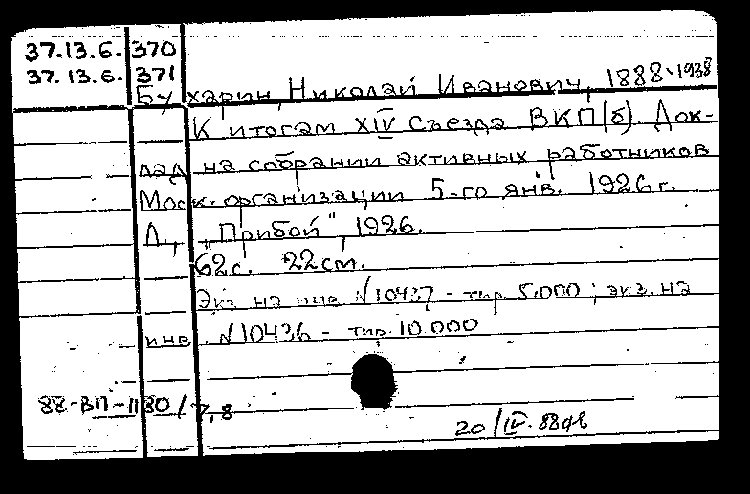 37.13.6. 370
37.13.6. 371
Бухарин, Николай Иванович, 1888-1938
К итогам XIV съезда ВКП(б). Док-
лад на собрании активных работников
Моск. организации 5-го янв. 1926 г.
Л., „Прибой", 1926.
62с. 22см.
Экз. на инв. №10437 - тир. 5.000; экз. на
инв. №10436 - тир. 10.000
88-ВП-1180/7,8
20/IV-88